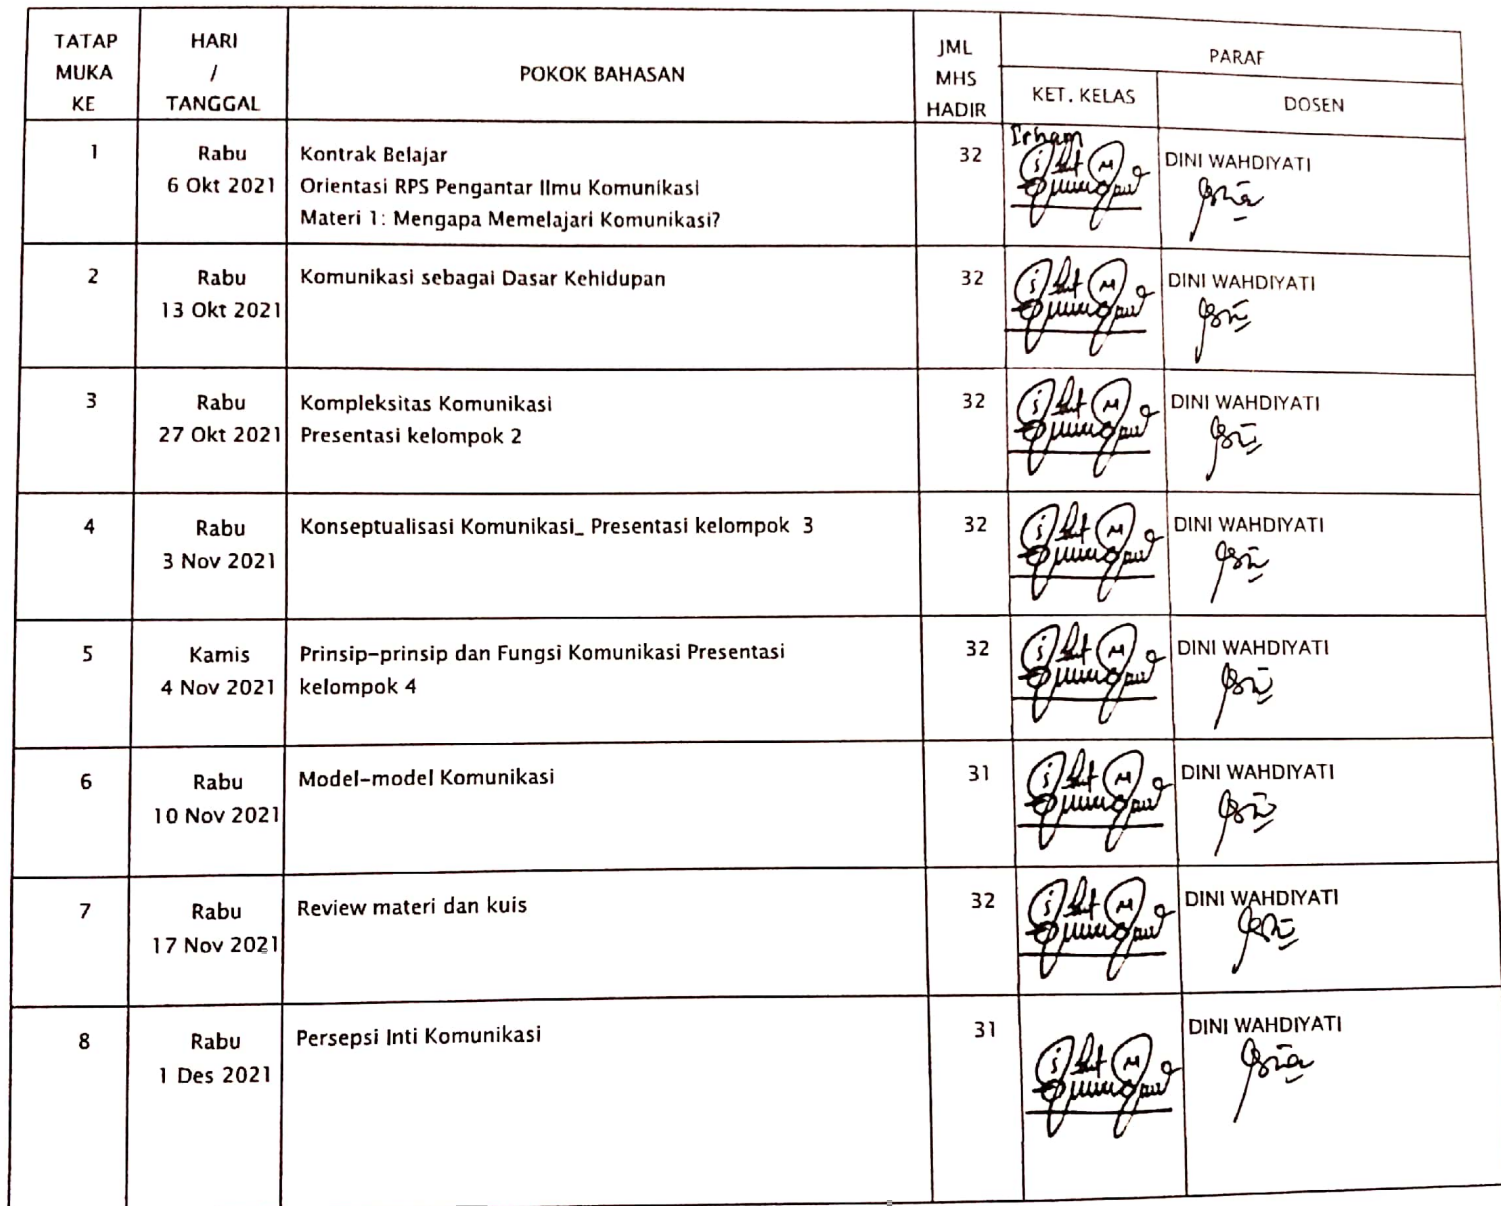 TATAP
MUKA
KE
HARI
/
TANGGAL
POKOK BAHASAN
JML
MHS
HADIR
PARAF
KET. KELAS
DOSEN
1
Rabu
6 Okt 2021
Kontrak Belajar
Orientasi RPS Pengantar Ilmu Komunikasi
Materi 1: Mengapa Memelajari Komunikasi?
32
Irham
DINI WAHDIYATI
2
Rabu
13 Okt 2021
Komunikasi sebagai Dasar Kehidupan
32
DINI WAHDIYATI
3
Rabu
27 Okt 2021
Kompleksitas Komunikasi
Presentasi kelompok 2
32
DINI WAHDIYATI
4
Rabu
3 Nov 2021
Konseptualisasi Komunikasi_ Presentasi kelompok 3
32
DINI WAHDIYATI
5
Kamis
4 Nov 2021
Prinsip-prinsip dan Fungsi Komunikasi Presentasi
kelompok 4
32
DINI WAHDIYATI
6
Rabu
10 Nov 2021
Model-model Komunikasi
31
DINI WAHDIYATI
7
Rabu
17 Nov 2021
Review materi dan kuis
32
DINI WAHDIYATI
8
Rabu
1 Des 2021
Persepsi Inti Komunikasi
31
DINI WAHDIYATI